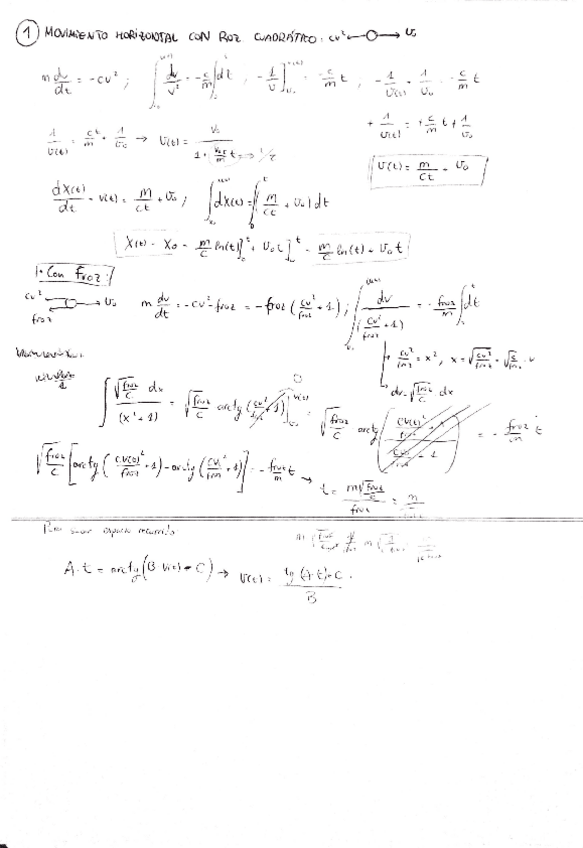 1 MOVIMIENTO HORIZONTAL CON ROZ. CUADRÁTICO: cv² ← ○ → v₀
m dv/dt = -cv² ; ∫ dv/v² = -c/m ∫dt ; -1/v ]v₀ v(t) = -c/m t ; -1/v(t) + 1/v₀ = -c/m t
+ 1/v(t) = + c/m t + 1/v₀
1/v(t) = ct/m + 1/v₀ → v(t) =
v(t) = m/ct + v₀
dx(t)/dt = v(t) = m/ct + v₀ ; ∫dx(t) = ∫(m/ct + v₀) dt
x(t) - x₀ = m/c ln(t)]₀ᵗ + v₀t]₀ᵗ = m/c ln(t) + v₀t
1. Con Froz:
cv² froz ← → v₀ m dv/dt = -cv² - froz = -froz (cv²/froz + 1) ; ∫ dv/(cv²/froz + 1) = -froz/m ∫dt
cv²/froz = x², x = √(cv²/froz) = √(c/froz) · v
dv = √(froz/c) dx
∫ √(froz/c) dx/(x² + 1) = √(froz/c) arctg = √(froz/c) arctg = -froz/m t
√(froz/c) [arctg (c v(t)²/froz + 1) - arctg (cv²/froz + 1)] = -froz/m t → t =
Para sacar espacio recorrido
A·t = arctg(B v(t) + C) → v(t) = tg(A·t) - C / B